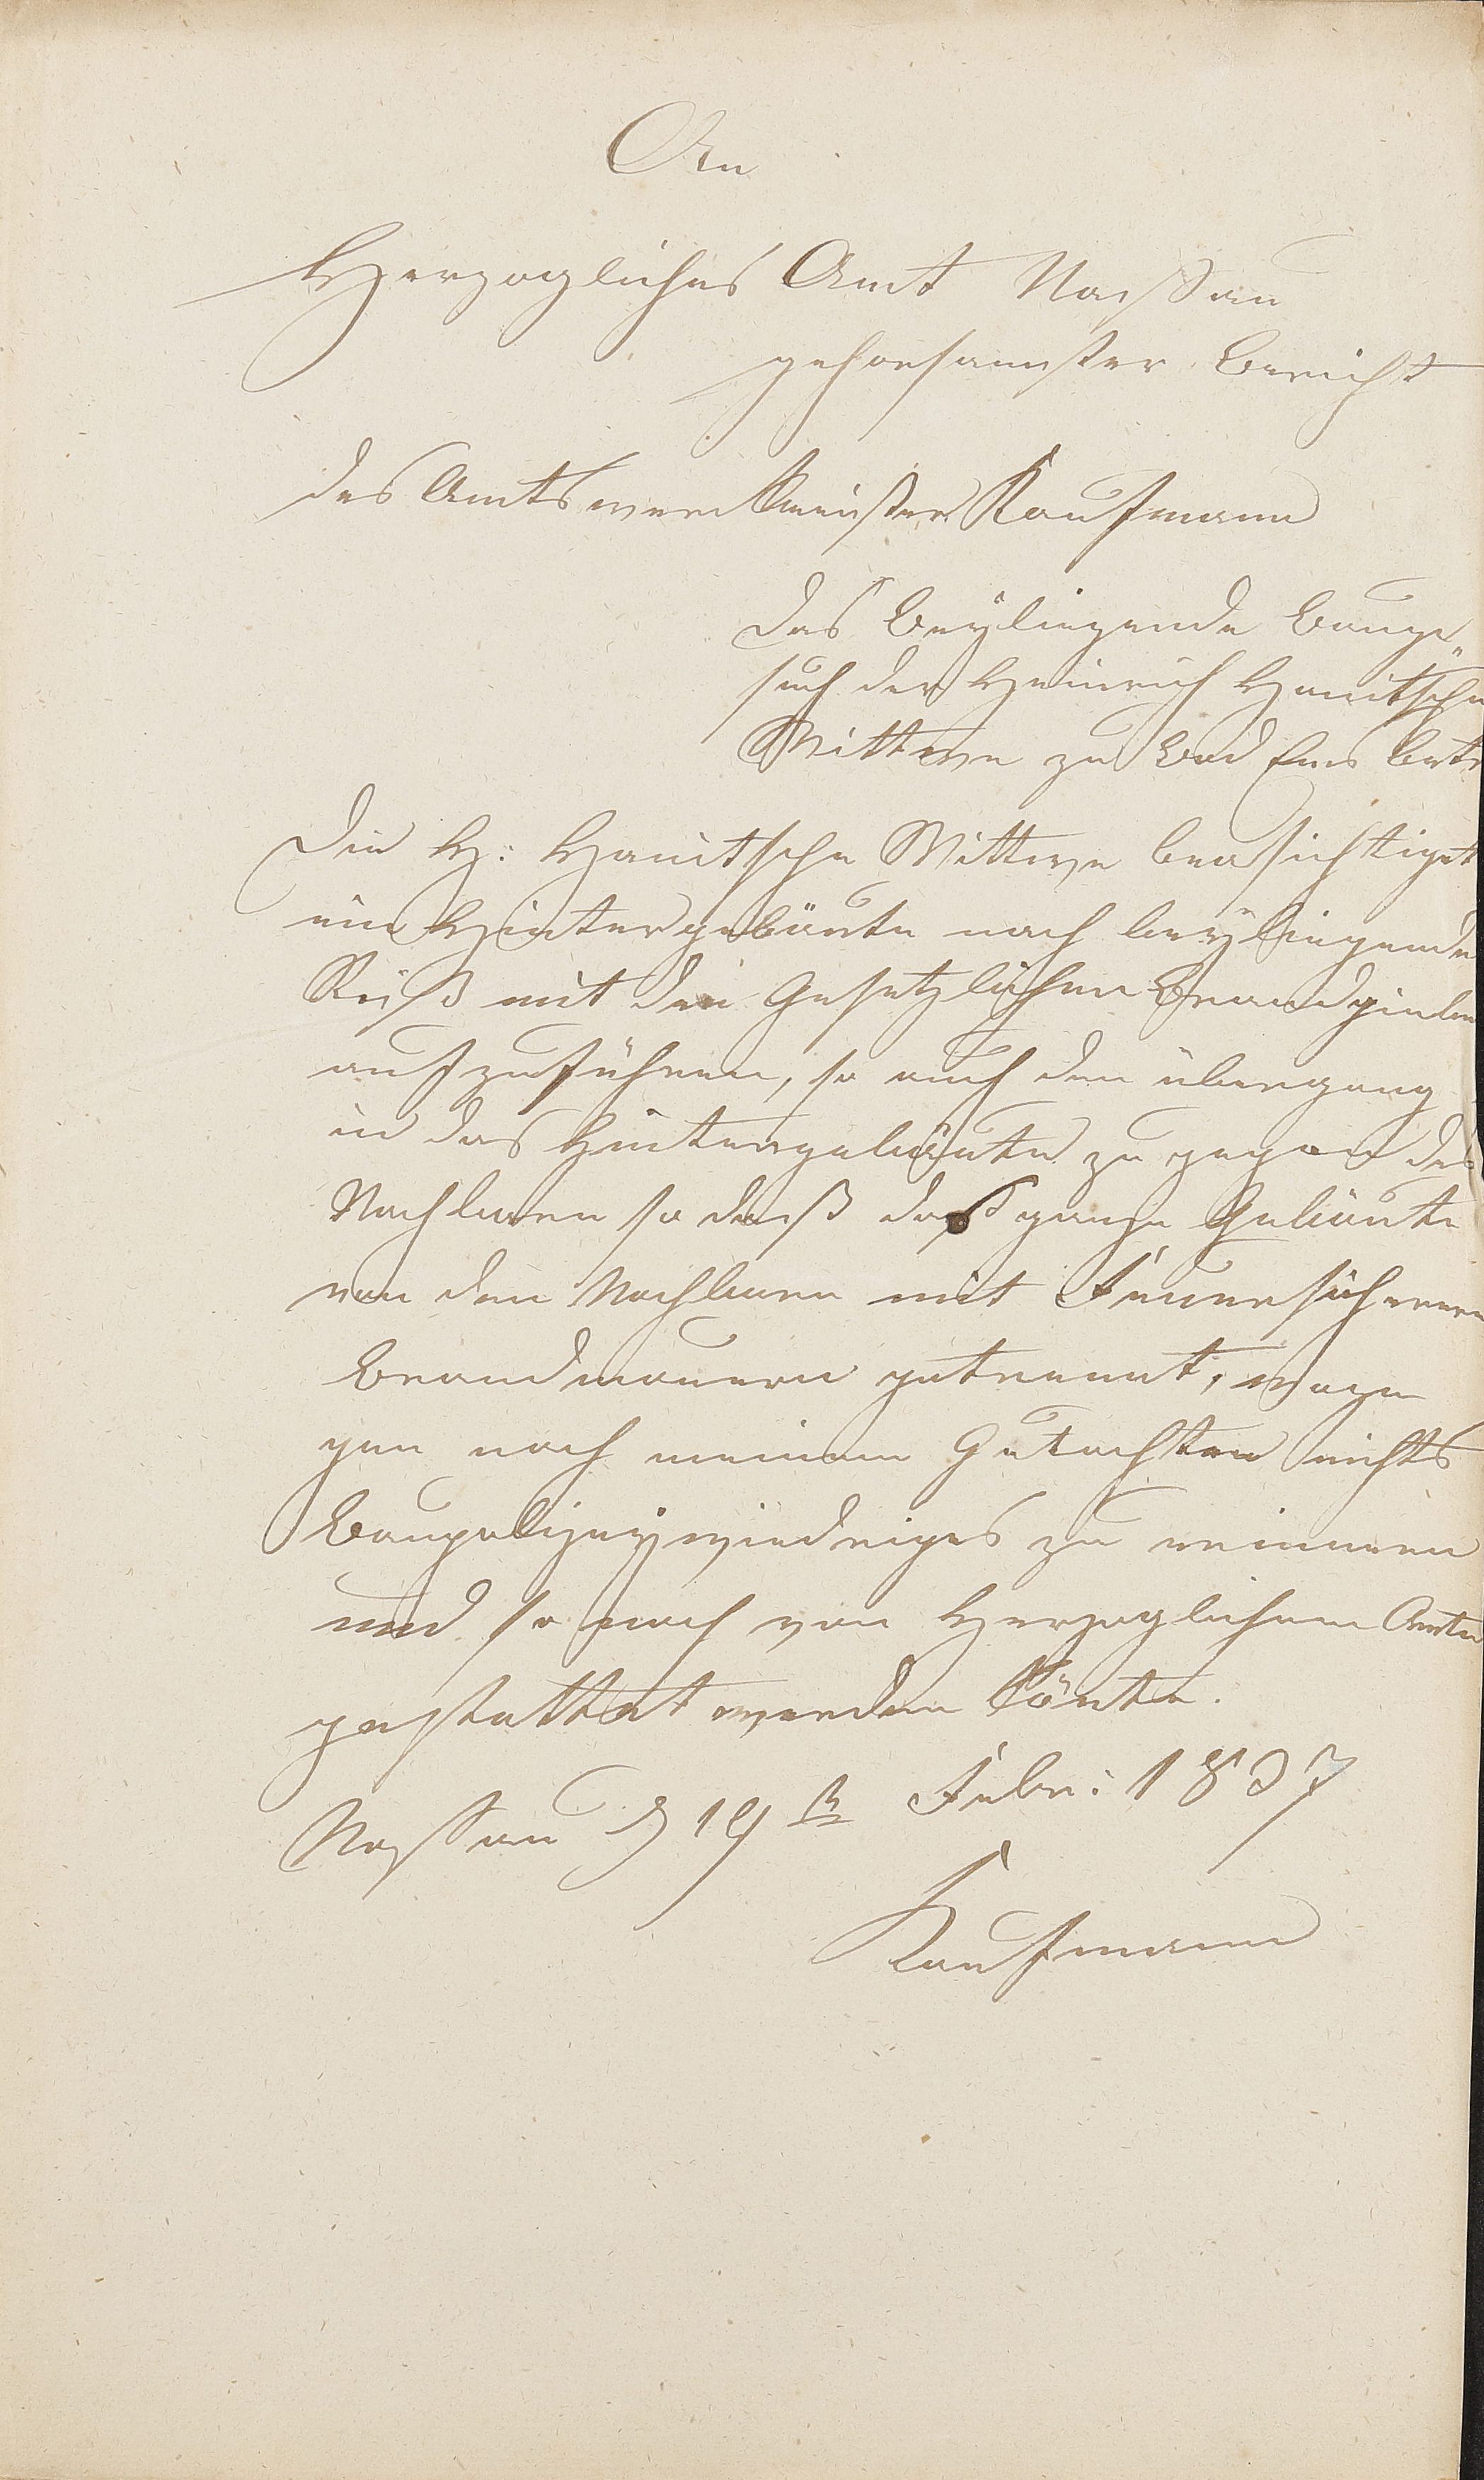 An
Herzogliches Amt Nassau
gehorsamster Bericht
des Amtswerckmeister Kaufmann
Das Beyliegende Bauge„
such der Heinrich Hanitsche
Wittwe zu Bad Ems betr
Die H: Hanitsche Wittwe beasichtiget
ein Hintergebäute nach beyliegende
Riß mit den Gesetzlichen Brandgiebel
aufzuführen, so auch den übergang
in das Hintergebäute zu gegen des
Nachbaren so daß das ganze Gebäute
von den Nachbaren mit Feuersicheren
Brandmauern getrennt, woge
gen nach meinem Gutachten nichts
Baupolizeywiedriges zu erinnern
und so nach von Herzoglichem Amte
gestattet werden könte.
Nassau d 19ten Febr: 1837
Kaufmann